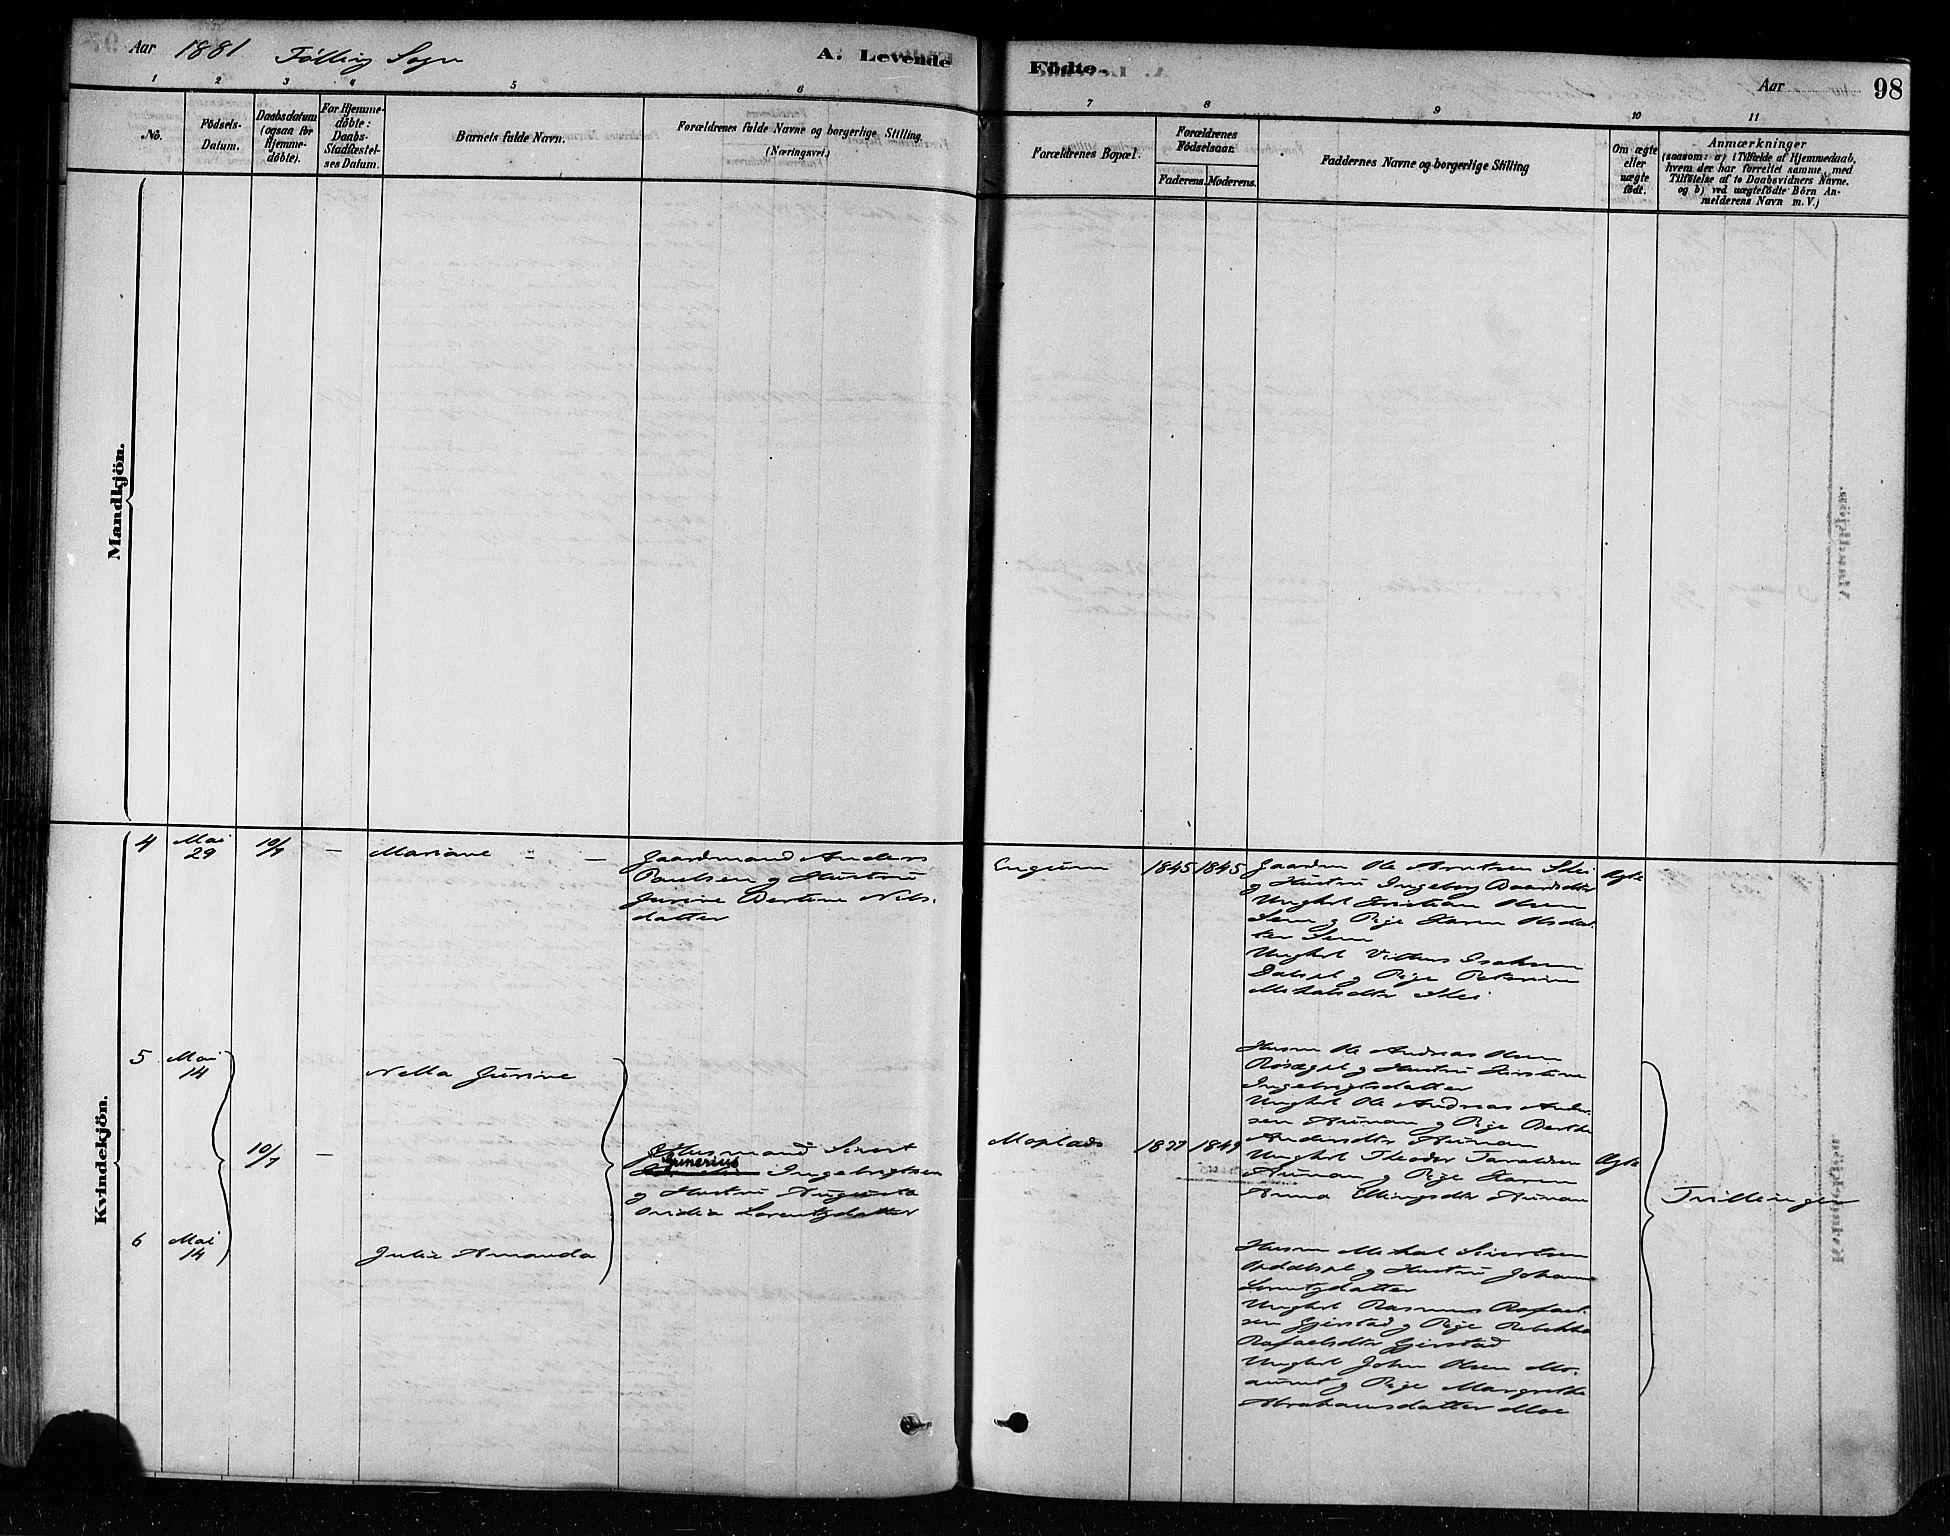 Aar 1881 Følling Sogn
A. Levende
Födte.
Aar
98
1 2 3 4 5 6 7 8 9 10 11
No.
Födsels-
Datum.
Daabsdatum
(ogsaa för
Hjemme-
döbte).
For Hjemme-
döbte:
Daabs-
Stadfæstel-
ses Datum.
Barnets fulde Navn.
Forældrenes fulde Navne og borgerlige Stilling
(Næringsvei.)
Forældrenes Bopæl.
Forældrenes
Födselsaar.
Faderens. Moderens.
Faddernes Navne og borgerlige Stilling
Om ægte
eller
uægte
födt.
Anmærkninger
(saasom: a) i Tilfælde af Hjemmedaab,
hvem der har forrettet samme, med
Tilföielse af to Daabsvidners Navne,
og b) ved uægtefödte Börn An-
melderens Navn m. V.)
Mandkjön.
Kvindekjön.
4
Mai
29
10/7
–
Mariane
Gaardmand Anders
Paulsen og Hustru
Jurine Bertine Nils-
datter
1845 1845
Gaardm Ole Arntsen Skei
og Hustru Ingeborg
Ungkel Kristian Olsen
Sem og Pige Karen Olsdat-
ter Sem
Ungkel Isaksen
og Pige
Skei
Ægte
5
Mai
14
Nella Jurine
10/7
–
Husmand Sivert
Junerius Ingebrigtsen
og Hustru Augusta
Lorentzdatter
Moplads
1849
Husm Ole Andreas Olsen
og Hustru Kirstine
Ingebrigtsdatter
Ungkel Ole Andreas Ander-
sen Aunan og Pige Berthe
Andersdtr Aunan
Ungkel Theodor
Aunan og Pige Karen
Anna Ellingsdtr Aunan
Ægte
Tvillinger
6
Mai
14
Julie Amanda
Husm Mikal Sivertsen
og Hustru Johan
Lorentzdatter
Ungkel Rasmus Rafael-
sen Gjerstad og Pige Rebekka
Rafaelsdtr Gjerstad
Ungkel John Olsen Mo-
og Pige Margrethe
Abrahamsdatter Moe